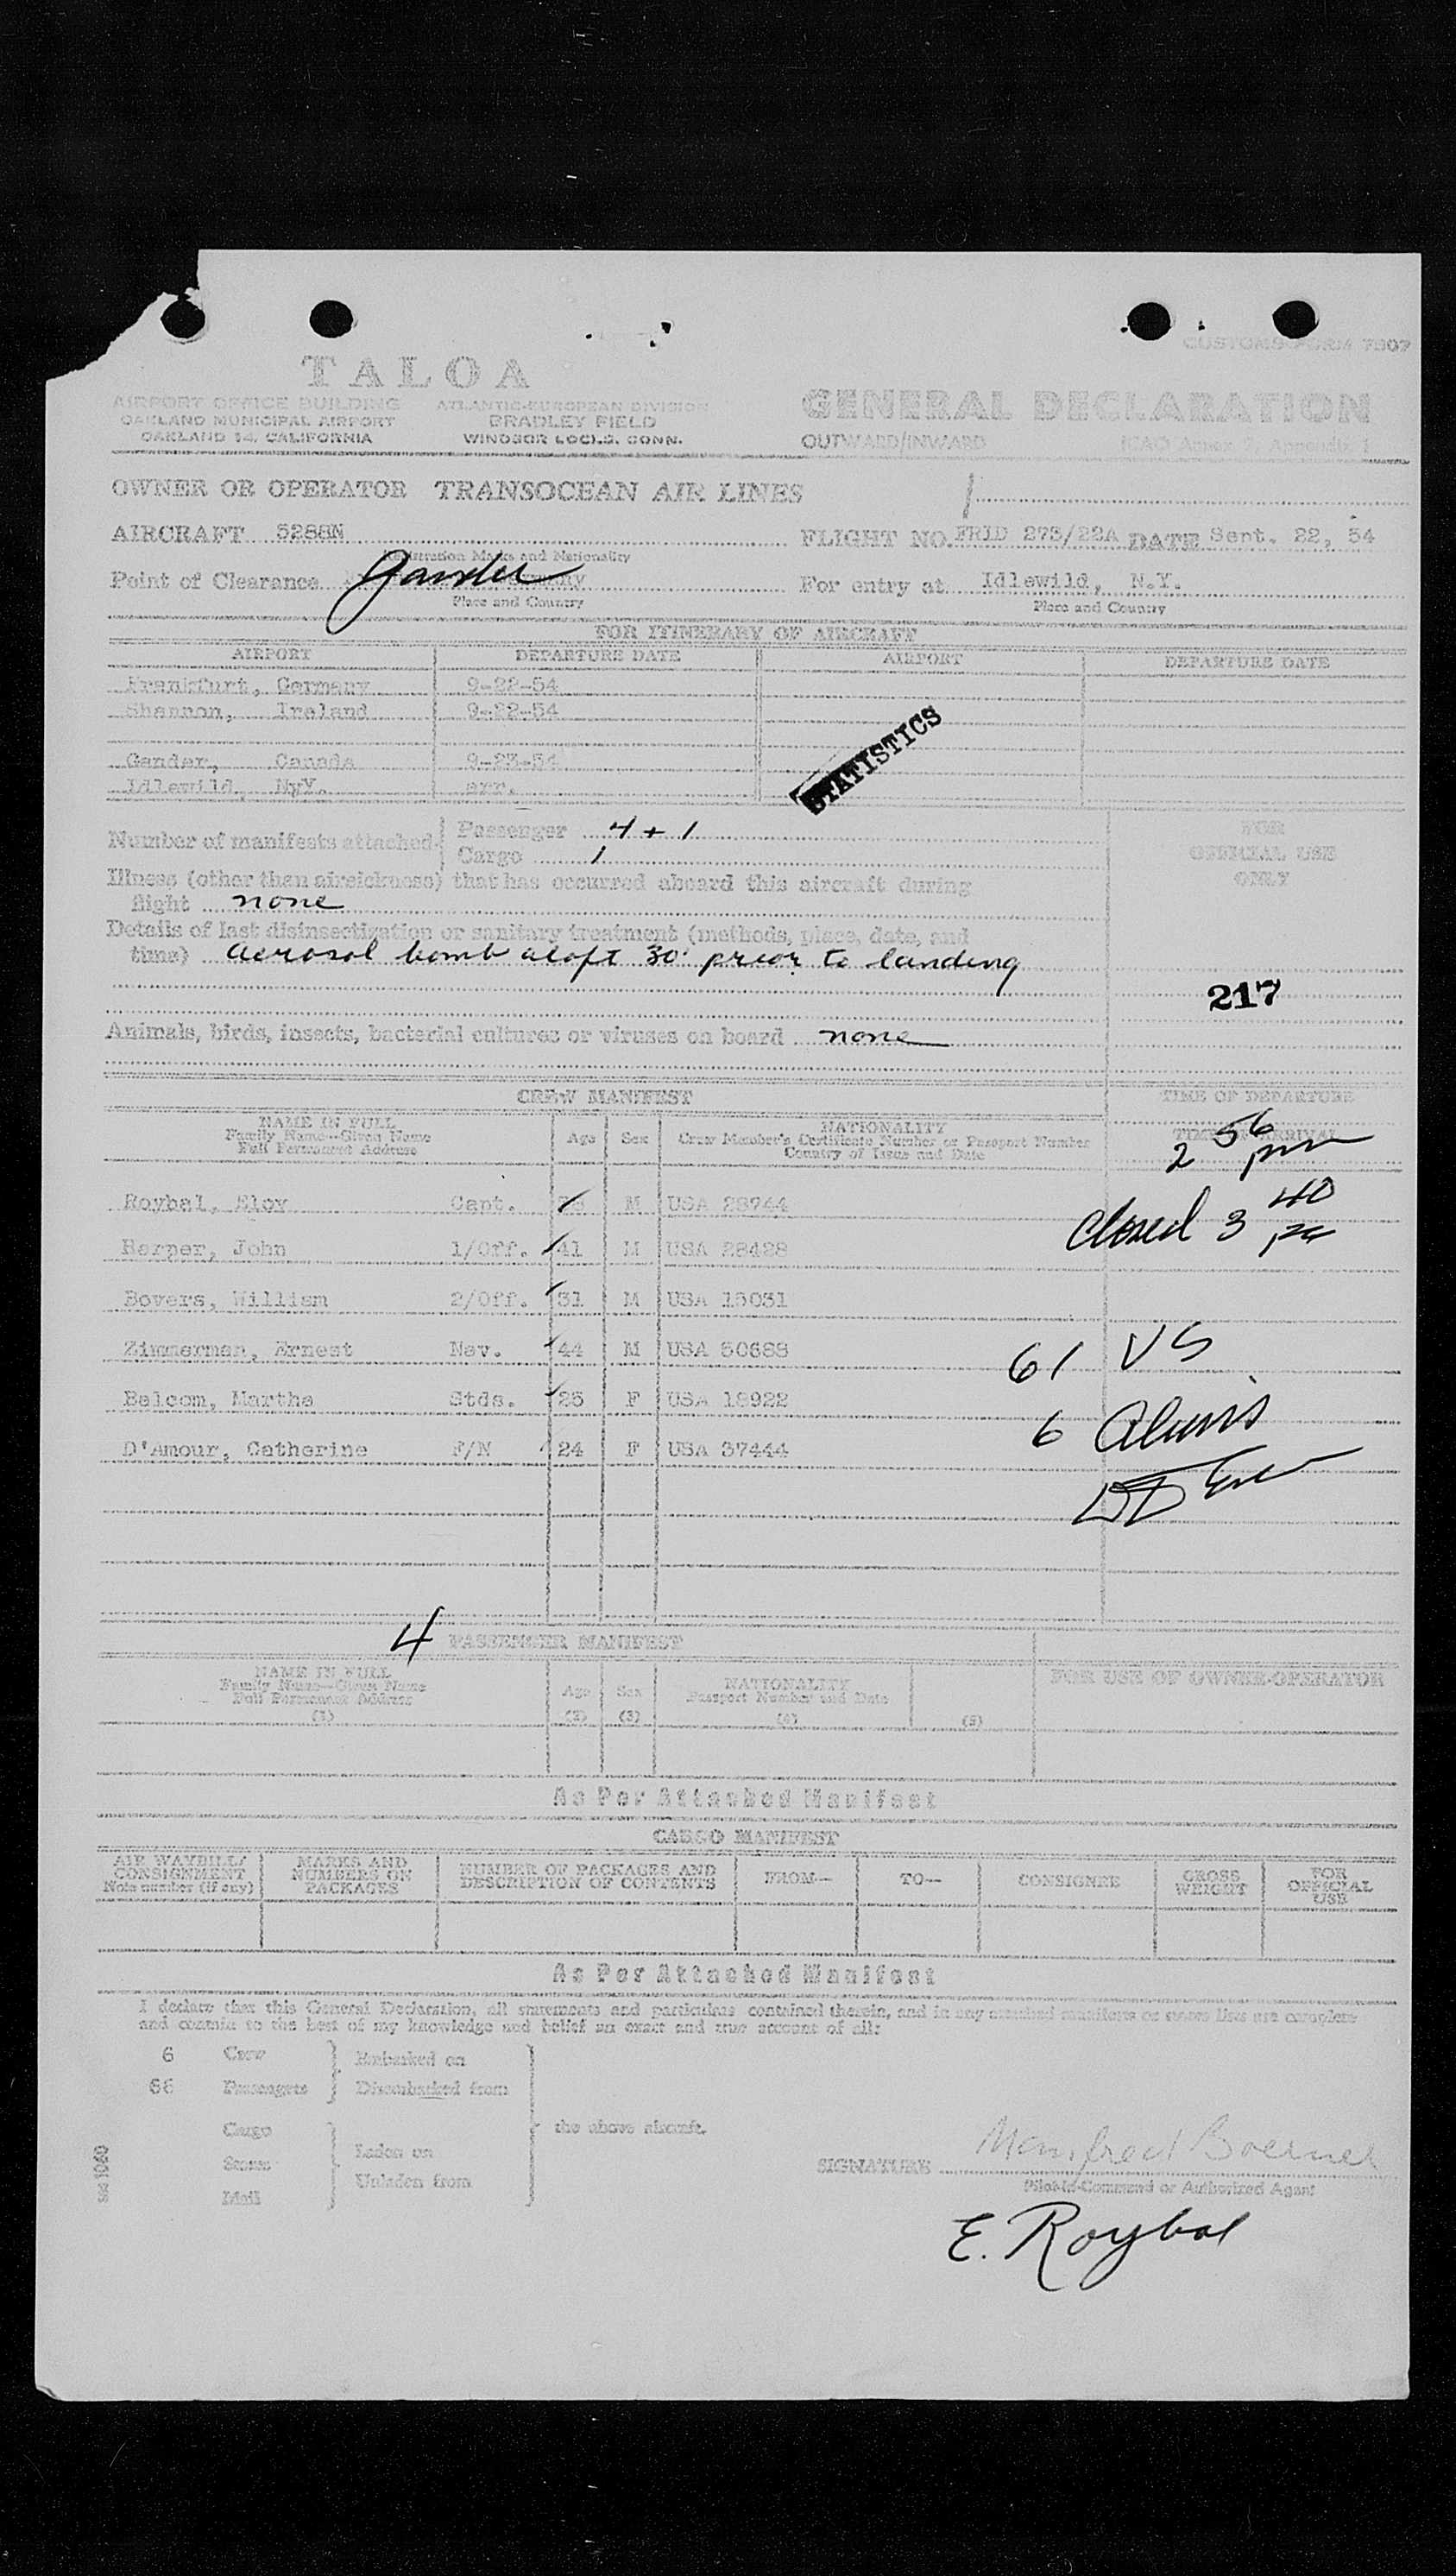 CUSTOMS FORM 7507
TALOA
AIRPORT OFFICE BUILDING
OAKLAND MUNICIPAL AIRPORT
OAKLAND 14, CALIFORNIA
ATLANTIC-EUROPEAN DIVISION
BRADLEY FIELD
WINDSOR LOCKS, CONN.
GENERAL DECLARATION
OUTWARD/INWARD (ICAO Annex 9, Appendix 1
OWNER OR OPERATOR TRANSOCEAN AIR LINES
AIRCRAFT 5288N FLIGHT NO. FRID 273/22A DATE Sept. 22, 54
Registration Marks and Nationality
Point of Clearance Gander For entry at Idlewild, N.Y.
Place and Country Place and Country
FOR ITINERARY OF AIRCRAFT
AIRPORT DEPARTURE DATE AIRPORT DEPARTURE DATE
Frankfurt, Germany 9-22-54
Shannon, Ireland 9-22-54
STATISTICS
Gander, Canada 9-23-54
Idlewild, N.Y. arr.
Number of manifests attached
Passenger 4 + 1
Cargo 1
FOR
OFFICIAL USE
ONLY
Illness (other than airsickness) that has occurred aboard this aircraft during
flight none
Details of last disinsectization or sanitary treatment (methods, place, date, and
time) aerosol bomb aloft 30' prior to landing
217
Animals, birds, insects, bacterial cultures or viruses on board none
CREW MANIFEST TIME OF DEPARTURE
NAME IN FULL
Family Name—Given Name
Full Permanent Address
Age Sex
NATIONALITY
Crew Member's Certificate Number or Passport Number
Country of Issue and Date
TIME OF ARRIVAL
2 56 pm
Roybal, Eloy Capt. M USA 28744
Closed 3 40
Harper, John 1/Off. 41 M USA 28428
Bovers, William 2/Off. 31 M USA 15031
Zimmerman, Ernest Nav. 44 M USA 50688
61 US
Balcom, Martha Stds. 25 F USA 18922
6 Aliens
D'Amour, Catherine F/N 24 F USA 37444
4 PASSENGER MANIFEST
NAME IN FULL
Family Name—Given Name
Full Permanent Address
(1)
Age
(2)
Sex
(3)
NATIONALITY
Passport Number and Date
(4)
(5)
FOR USE OF OWNER-OPERATOR
As Per Attached Manifest
CARGO MANIFEST
AIR WAYBILL/
CONSIGNMENT
Note number (if any)
MARKS AND
NUMBERS ON
PACKAGES
NUMBER OF PACKAGES AND
DESCRIPTION OF CONTENTS
FROM—
TO—
CONSIGNEE
GROSS
WEIGHT
FOR
OFFICIAL
USE
As Per Attached Manifest
I declare that this General Declaration, all statements and particulars contained therein, and in any attached manifests or stores lists are complete
and contain to the best of my knowledge and belief an exact and true account of all:
6 Crew Embarked on
66 Passengers Disembarked from
Cargo
Stores
Mail
Laden on
Unladen from
the above aircraft.
SIGNATURE Manfred Boerner
Pilot-in-Command or Authorized Agent
E. Roybal